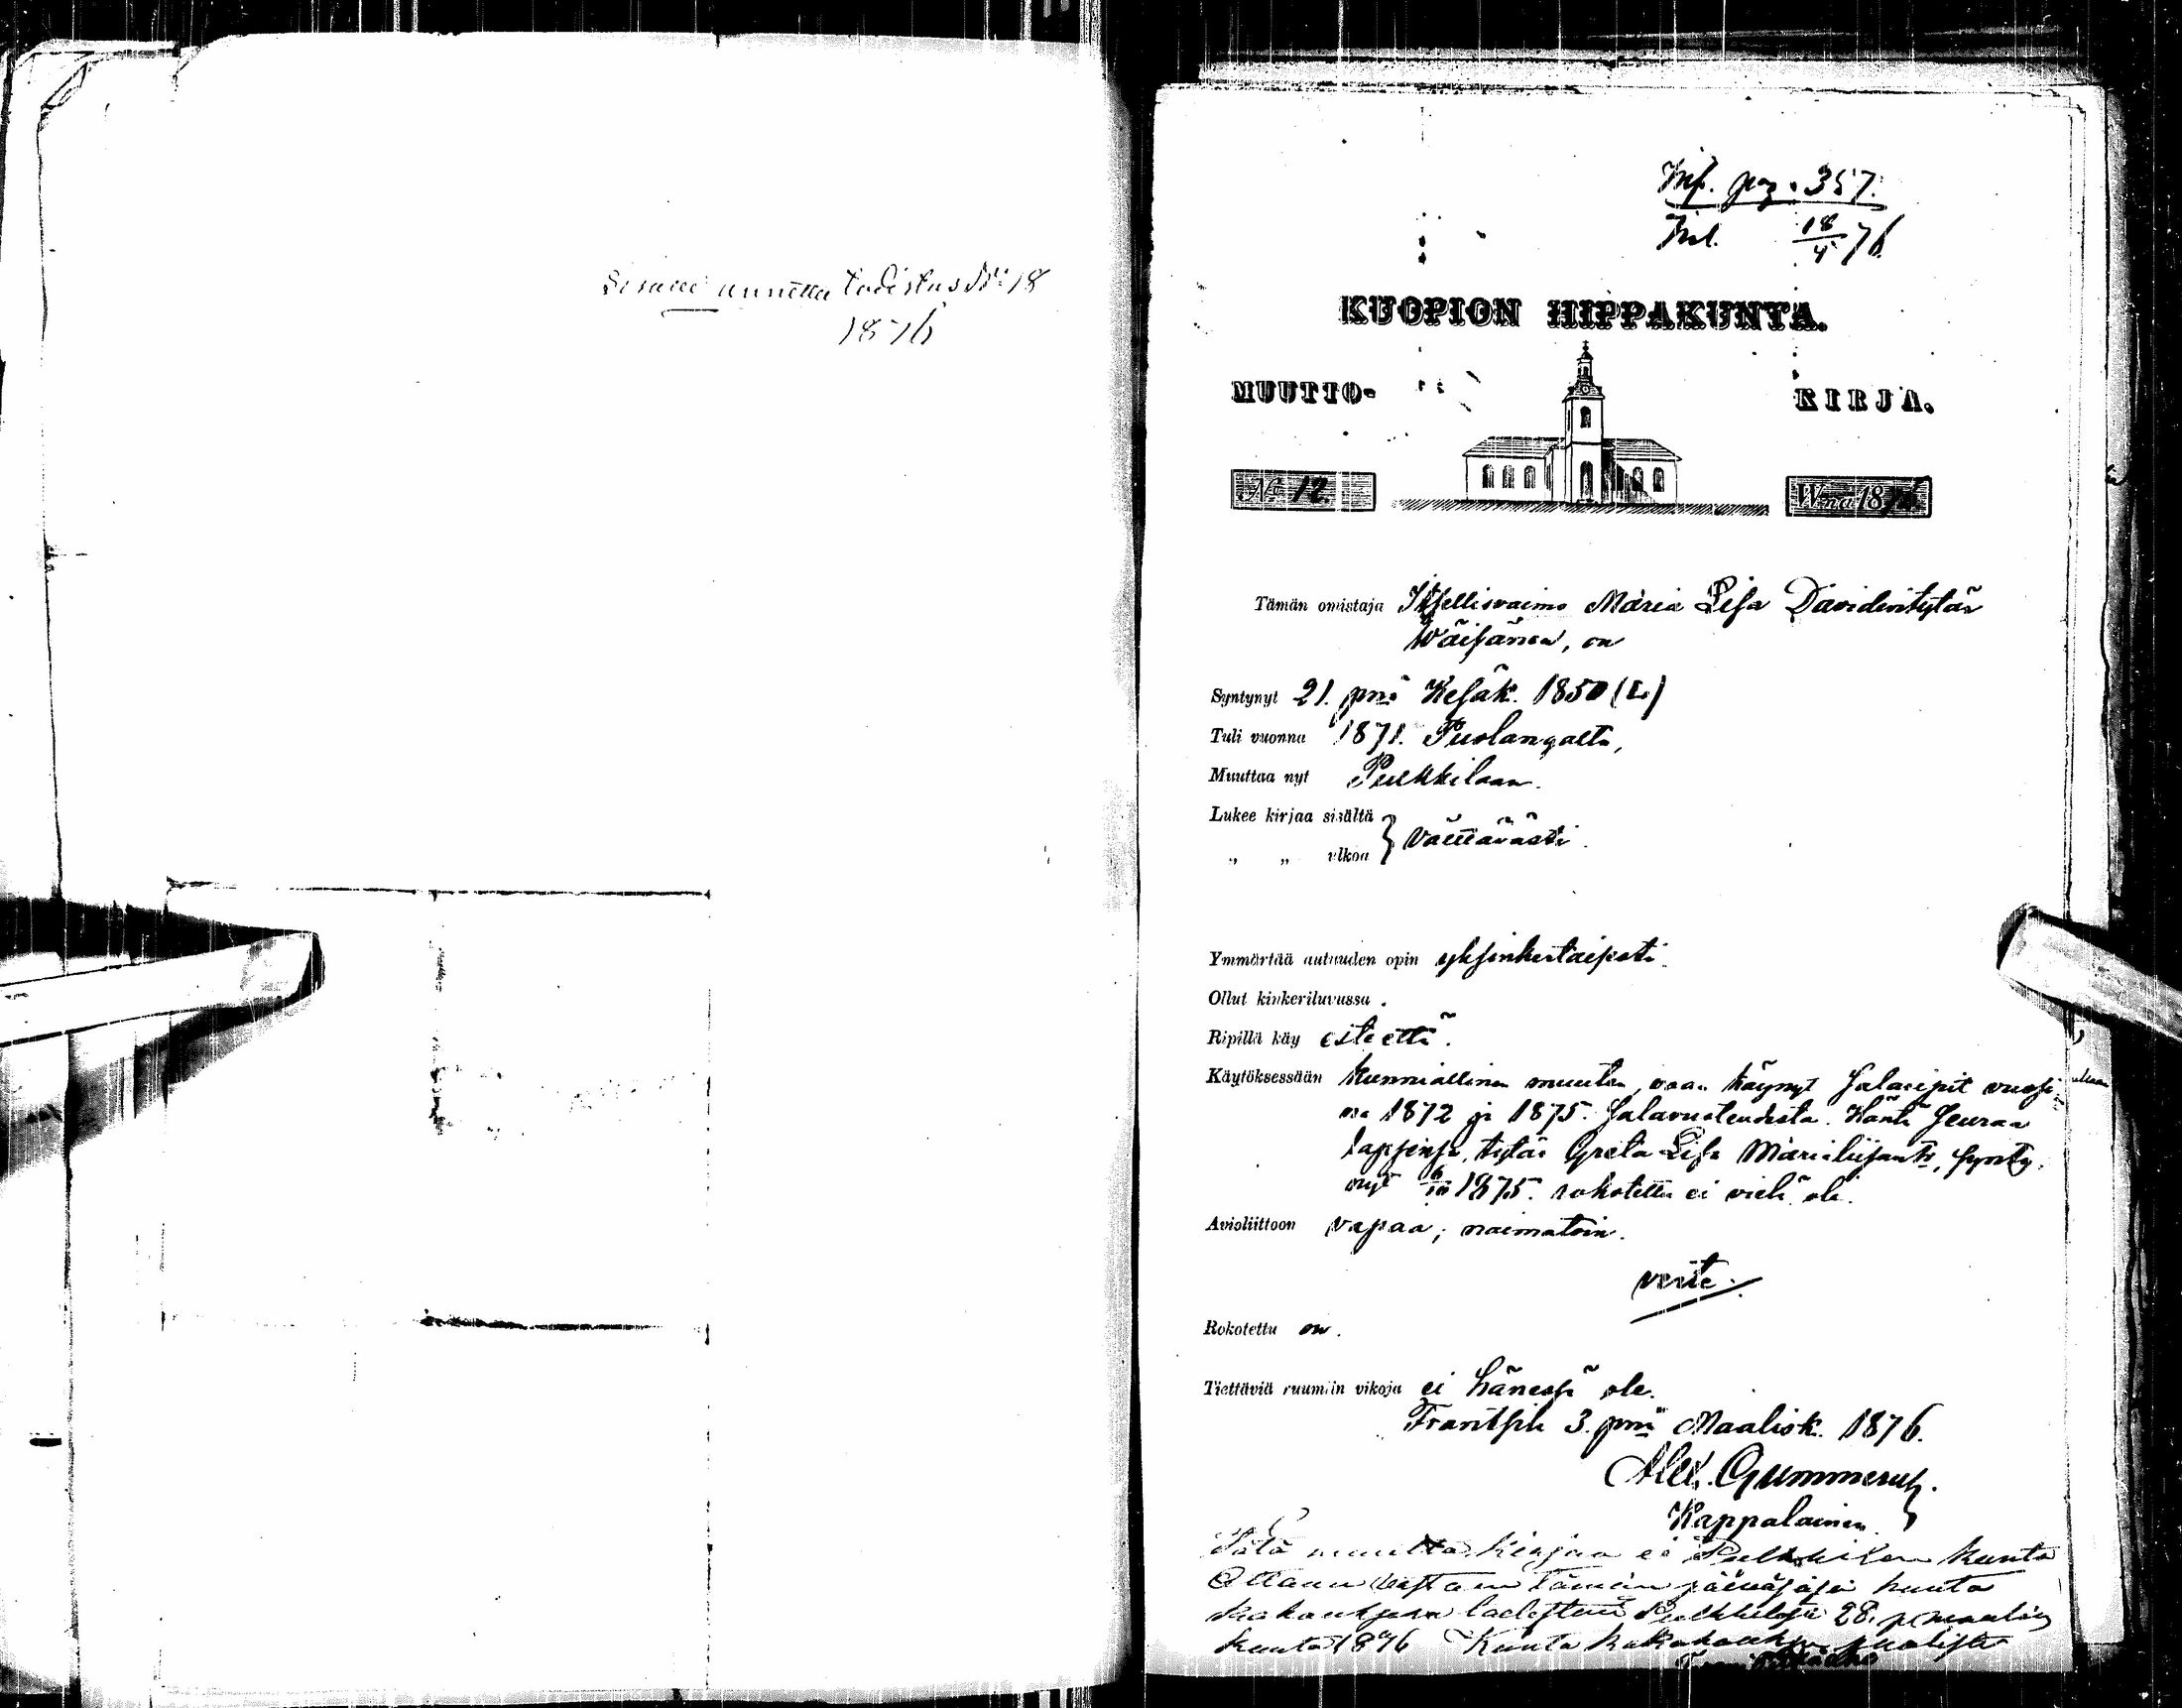 todistus No 18
1876
Inf. pag. 357.
Inl. 18/4 76.
KUOPION HIPPAKUNTA.
MUUTTO- KIRJA.
No 12. W:na 1876.
Tämän omistaja Itsellisvaimo Maria Lisa Davidintytär
Wäisänen, on
Syntynyt 21. pnä Kesäk. 1850 (L)
Tuli vuonna 1871. Puolangalta,
Muuttaa nyt Pulkkilaan.
Lukee kirjaa sisältä
„ „ ulkoa } välttävästi.
Ymmärtää autuuden opin yksinkertaisesti.
Ollut kinkeriluvussa .
Ripillä käy esteettä.
Käytöksessään kunniallinen muuten, vaan käynyt salaripit vuosi-
na 1872 ja 1875. salavuoteudesta. Häntä seuraa
lapsensa, tytär Greta Lisa Marialiisant:r, synty-
nyt 1875. rokotettu ei vielä ole.
Avioliittoon vapaa; naimatoin.
verte.
Rokotettu on.
Tiettäviä ruumiin vikoja ei hänessä ole.
Frantsila 3. pnä Maalisk. 1876.
Alex. Gummerus.
Kappalainen.
Tätä muutto kirjaa ei Pulkkilan kunta
Ottanu vastaan tämän päiväsässä kunta
kokouksessa Pulkkilassa 28. p maalis
kuuta 1876 Kunta kokouksen puolesta